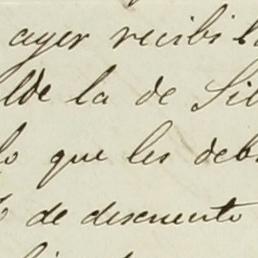 ayer recibi la
lde la de Sil
lo que les deb
de descuento